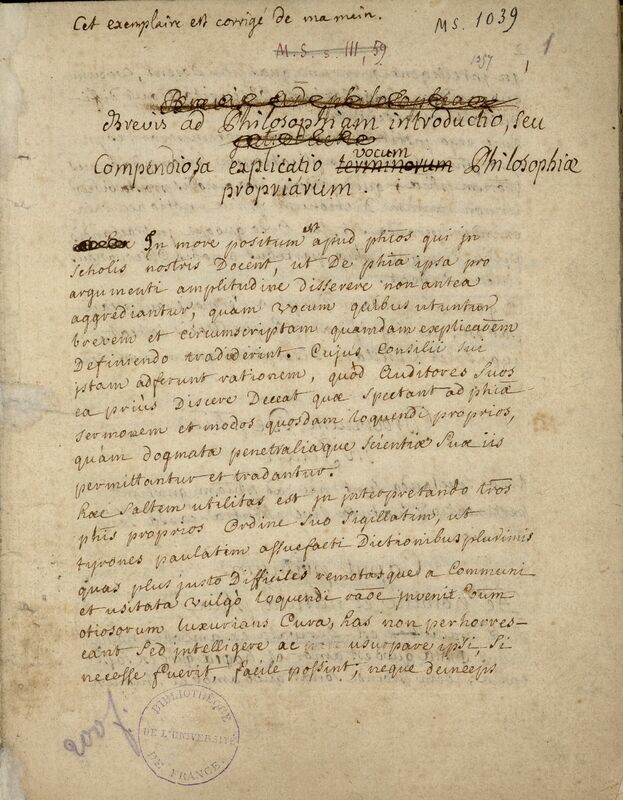 Cet exemplaire est corrigé de ma main.
Ms. 1039
M.S. s. III, 59
1357
1
Brevis ad Philosophiam introductio, seu
Compendiosa explicatio terminorum vocum Philosophiæ
propriarum.
In more positum est apud phios qui in
scholis nostris Docent, ut De phia ipsa pro
argumenti amplitudine disserere non antea
aggrediantur, quàm vocum quibus utuntur
brevem et circumscriptam quamdam explicaoem
Definiendo tradiderint. Cujus Consilii sui
istam adferunt rationem, quòd Auditores Suos
ea priùs Discere Deceat quæ Spectant ad phiæ
sermonem et modos quosdam loquendi proprios,
quàm dogmata penetraliaque Scientiæ Suæ iis
permittantur et tradantur.
hæc Saltem utilitas est in interpretando tros
phis proprios Ordine Suo Sigillatim, ut
tyrones paulatim assuefacti Dictionibus plurimis
quas plus justo Difficiles remotasque a Communi
et usitata vulgò loquendi raoe invenit
otiosorum luxurians Cura, has non perhorres-
cant Sed intelligere ac usurpare ipsi, Si
necesse fuerit, facilè possint; neque deinceps
200 f.
BIBLIOTHÈQUE
DE L'UNIVERSITÉ
DE FRANCE